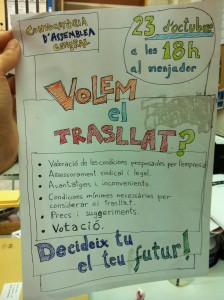 CONVOCATÒRIA
D'ASSEMBLEA
GENERAL
23 d'octubre
a les 18h
al menjador
VOLEM
el
TRASLLAT?
• Valoració de les condicions proposades per l'empresa
• Assessorament sindical i legal.
• Avantatges i inconvenients.
• Condicions mínimes necessàries per
considerar el trasllat.
• Precs i suggeriments.
• Votació.
Decideix tu
el teu futur!